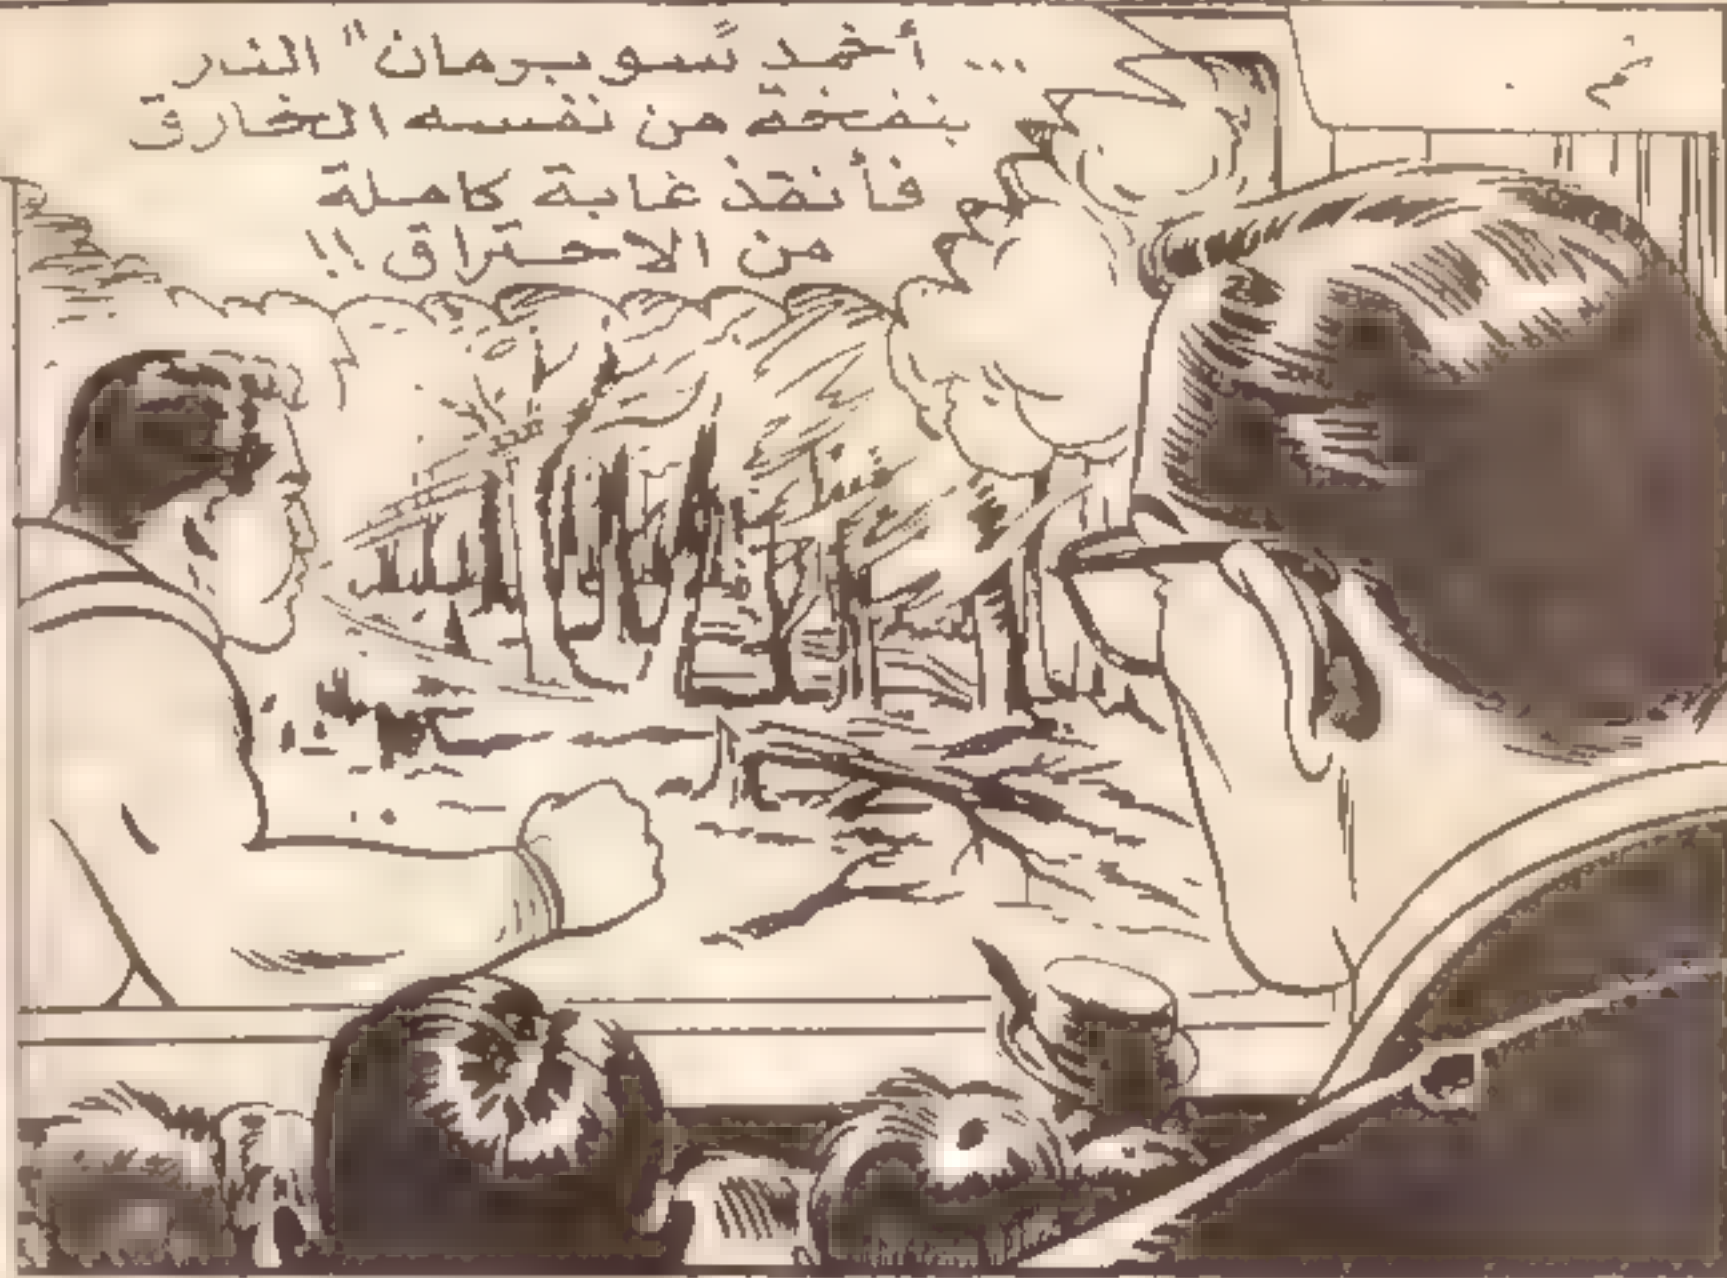 ... أخمد سوبرمان" النار
بنفخة من نفسه الخارق
فأنقذ غابة كاملة
من الاحتراق !!